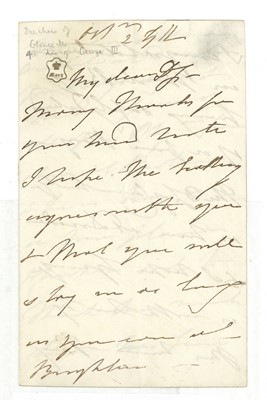 Duchess of
Gloucester
George III
Mary
My dear
Many Thanks for
your kind note
I hope the bathing
agrees with you
& that you will
stay on as long
as you can at
Brighton